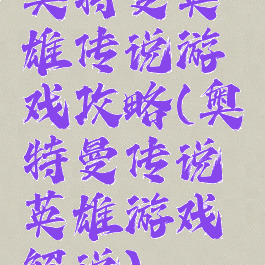 奥特曼英
雄传说游
戏攻略(奥
特曼传说
英雄游戏
解说)